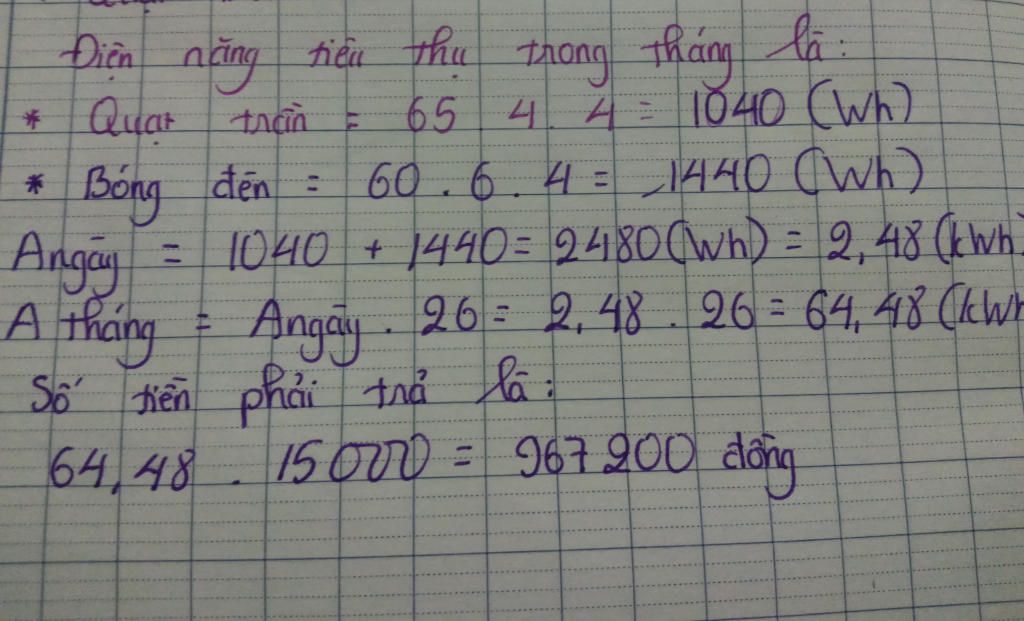 Điện năng tiêu thụ trong tháng là:
* Quạt trần = 65 4. 4 = 1040 (Wh)
* Bóng đèn = 60 . 6 . 4 = 1440 (Wh)
Angày = 1040 + 1440 = 2480 (Wh) = 2,48 (kWh)
A tháng = Angày . 26 = 2,48 . 26 = 64,48 (kWh
Số tiền phải trả là:
64,48 . 15000 = 967200 đồng